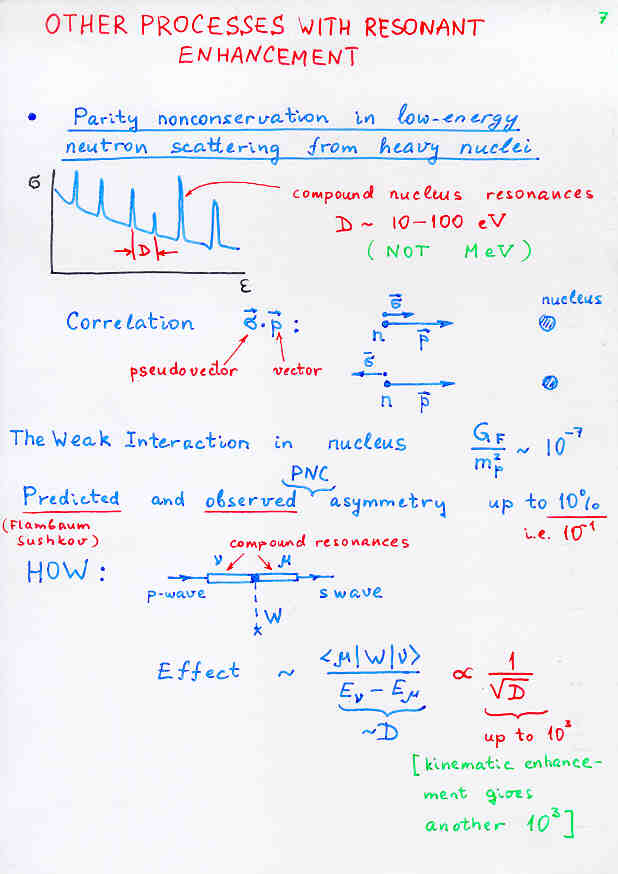 OTHER PROCESSES WITH RESONANT
7
ENHANCEMENT
• Parity nonconservation in low-energy
neutron scattering from heavy nuclei
σ
compound nucleus resonances
D ~ 10-100 eV
D
(NOT MeV)
ε
nucleus
Correlation σ⃗·p⃗ :
σ⃗
n p⃗
pseudovector vector
σ⃗
n p⃗
The Weak Interaction in nucleus G_F/m_p² ~ 10⁻⁷
PNC
Predicted and observed asymmetry up to 10%
(Flambaum
Sushkov)
i.e. 10⁻¹
compound resonances
HOW:
ν μ
p-wave s wave
W
Effect ~ <μ|W|ν> / E_ν - E_μ ∝ 1/√D
~D
up to 10³
[kinematic enhance-
ment gives
another 10³]